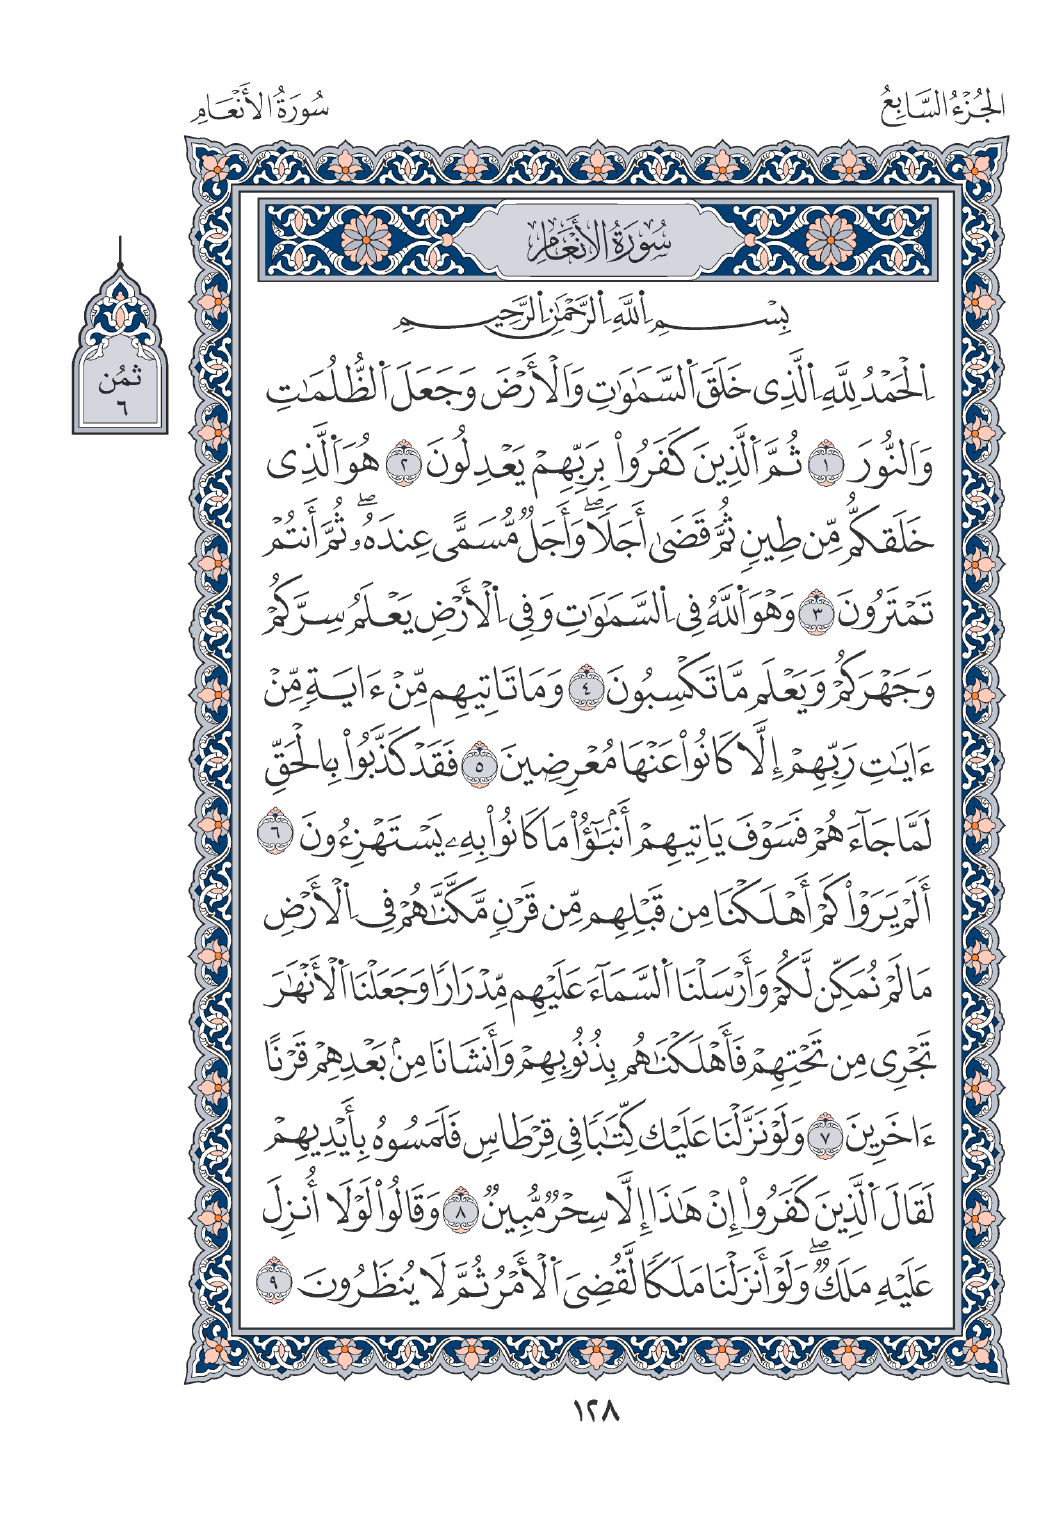 الجُزْءُ السَّابِعُ
سُورَةُ الأَنْعَامِ
سُورَةُ الأَنْعَامِ
بِسْمِ اِ۬للَّهِ اِ۬لرَّحْمَٰنِ اِ۬لرَّحِيمِ
اِ۬لْحَمْدُ لِلَّهِ اِ۬لَّذِى خَلَقَ اَ۬لسَّمَٰوَٰتِ وَالْأَرْضَ وَجَعَلَ اَ۬لظُّلُمَٰتِ
وَالنُّورَ ١ ثُمَّ اَ۬لَّذِينَ كَفَرُواْ بِرَبِّهِمْ يَعْدِلُونَ ٢ هُوَ اَ۬لَّذِى
خَلَقكُّم مِّن طِينٍ ثُمَّ قَضَىٰ أَجَلًاۖ وَأَجَلٌ مُّسَمًّى عِندَهُۥۖ ثُمَّ أَنتُمْ
تَمْتَرُونَ ٣ وَهْوَ اَ۬للَّهُ فِى اِ۬لسَّمَٰوَٰتِ وَفِى اِ۬لْأَرْضِ يَعْلَمُ سِرَّكُمْ
وَجَهْرَكُمْ وَيَعْلَم مَّا تَكْسِبُونَ ٤ وَمَا تَاتِيهِم مِّنْ ءَايَةٍ مِّنْ
ءَايَٰتِ رَبِّهِمْ إِلَّا كَانُواْ عَنْهَا مُعْرِضِينَ ٥ فَقَدْ كَذَّبُواْ بِالْحَقِّ
لَمَّا جَآءَهُمْ فَسَوْفَ يَاتِيهِمْ أَنۢبَٰٓؤُاْ مَا كَانُواْ بِهِۦ يَسْتَهْزِءُونَ ٦
أَلَمْ يَرَوْاْ كَمْ أَهْلَكْنَا مِن قَبْلِهِم مِّن قَرْنٍ مَّكَّنَّٰهُمْ فِى اِ۬لْأَرْضِ
مَا لَمْ نُمَكِّن لَّكُمْ وَأَرْسَلْنَا اَ۬لسَّمَآءَ عَلَيْهِم مِّدْرَارًا وَجَعَلْنَا اَ۬لْأَنْهَٰرَ
تَجْرِى مِن تَحْتِهِمْ فَأَهْلَكْنَٰهُم بِذُنُوبِهِمْ وَأَنشَانَا مِنۢ بَعْدِهِمْ قَرْنًا
ءَاخَرِينَ ٧ وَلَوْ نَزَّلْنَا عَلَيْك كِّتَٰبًا فِى قِرْطَاسٍ فَلَمَسُوهُ بِأَيْدِيهِمْ
لَقَالَ اَ۬لَّذِينَ كَفَرُواْ إِنْ هَٰذَا إِلَّا سِحْرٌ مُّبِينٌ ٨ وَقَالُواْ لَوْلَا أُنزِلَ
عَلَيْهِ مَلَكٌۖ وَلَوْ أَنزَلْنَا مَلَكًا لَّقُضِىَ اَ۬لْأَمْرُ ثُمَّ لَا يُنظَرُونَ ٩
ثمُن
٦
١٢٨